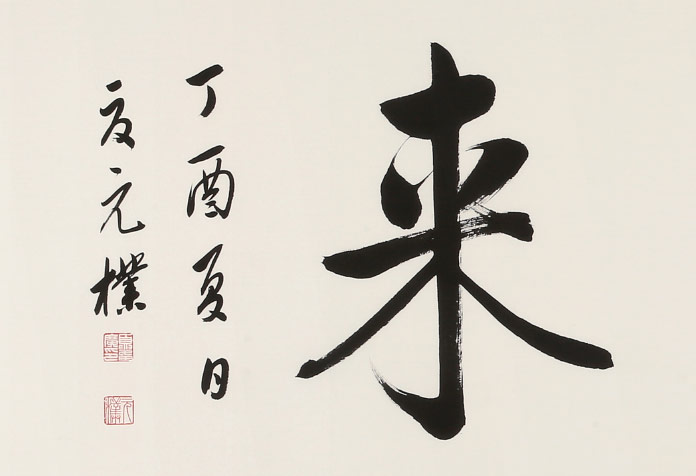 来
丁酉夏日
元樸